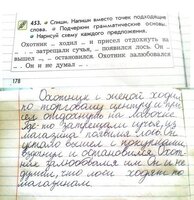 453. Спиши. Напиши вместо точек подходящие
слова. • Подчеркни грамматические основы.
• Нарисуй схему каждого предложения.
Охотник ... ходил ... и присел отдохнуть на
... . ... затрещали сучья, ... появился лось. Он ...
вышел ... , ... остановился. Охотник залюбовался
... . Он и не думал ... .
178
Охотник с женой ходил
по торговому центру и при-
сел отдохнуть на лавочке.
Где-то затрещали сучья, из
магазина появился лось. Он
устало вышел с покупками
и остановился. Охот-
ник залюбовался им. Он и не
думал, что лоси ходят по
магазинам.